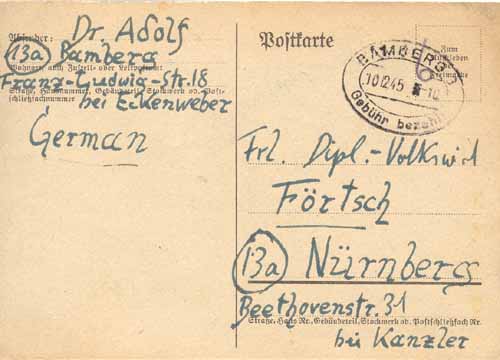 Dr. Adolf
Absender:
(13a) Bamberg
Wohnort, auch Zustell- oder Leitpostamt
Franz-Ludwig-Str. 18
Straße, Hausnummer, Gebäudeteil, Stockwerk od. Post-
schließfachnummer
bei Eckenweber
German
Postkarte
BAMBERG
10.12.45
Gebühr bezahlt
6
Frl. Dipl.-Volkswirt
Förtsch
(13a) Nürnberg
Beethovenstr. 31
Straße, Haus Nr., Gebäudeteil, Stockwerk od. Postschließfach Nr.
bei Kanzler